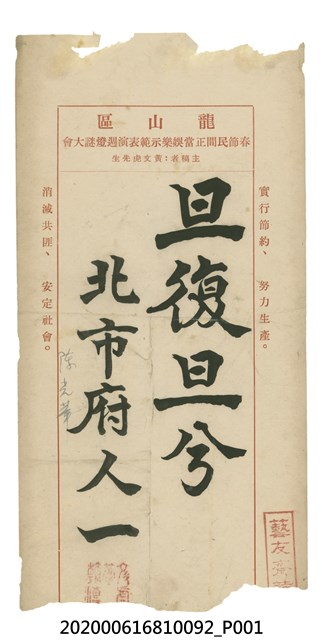 龍山區
春節民間正當娛樂示範表演週燈謎大會
主稿者：黃文虎先生
實行節約、努力生產。
旦復旦兮
北市府人一
消滅共匪、安定社會。
陳光華
藝友
202000616810092_P001